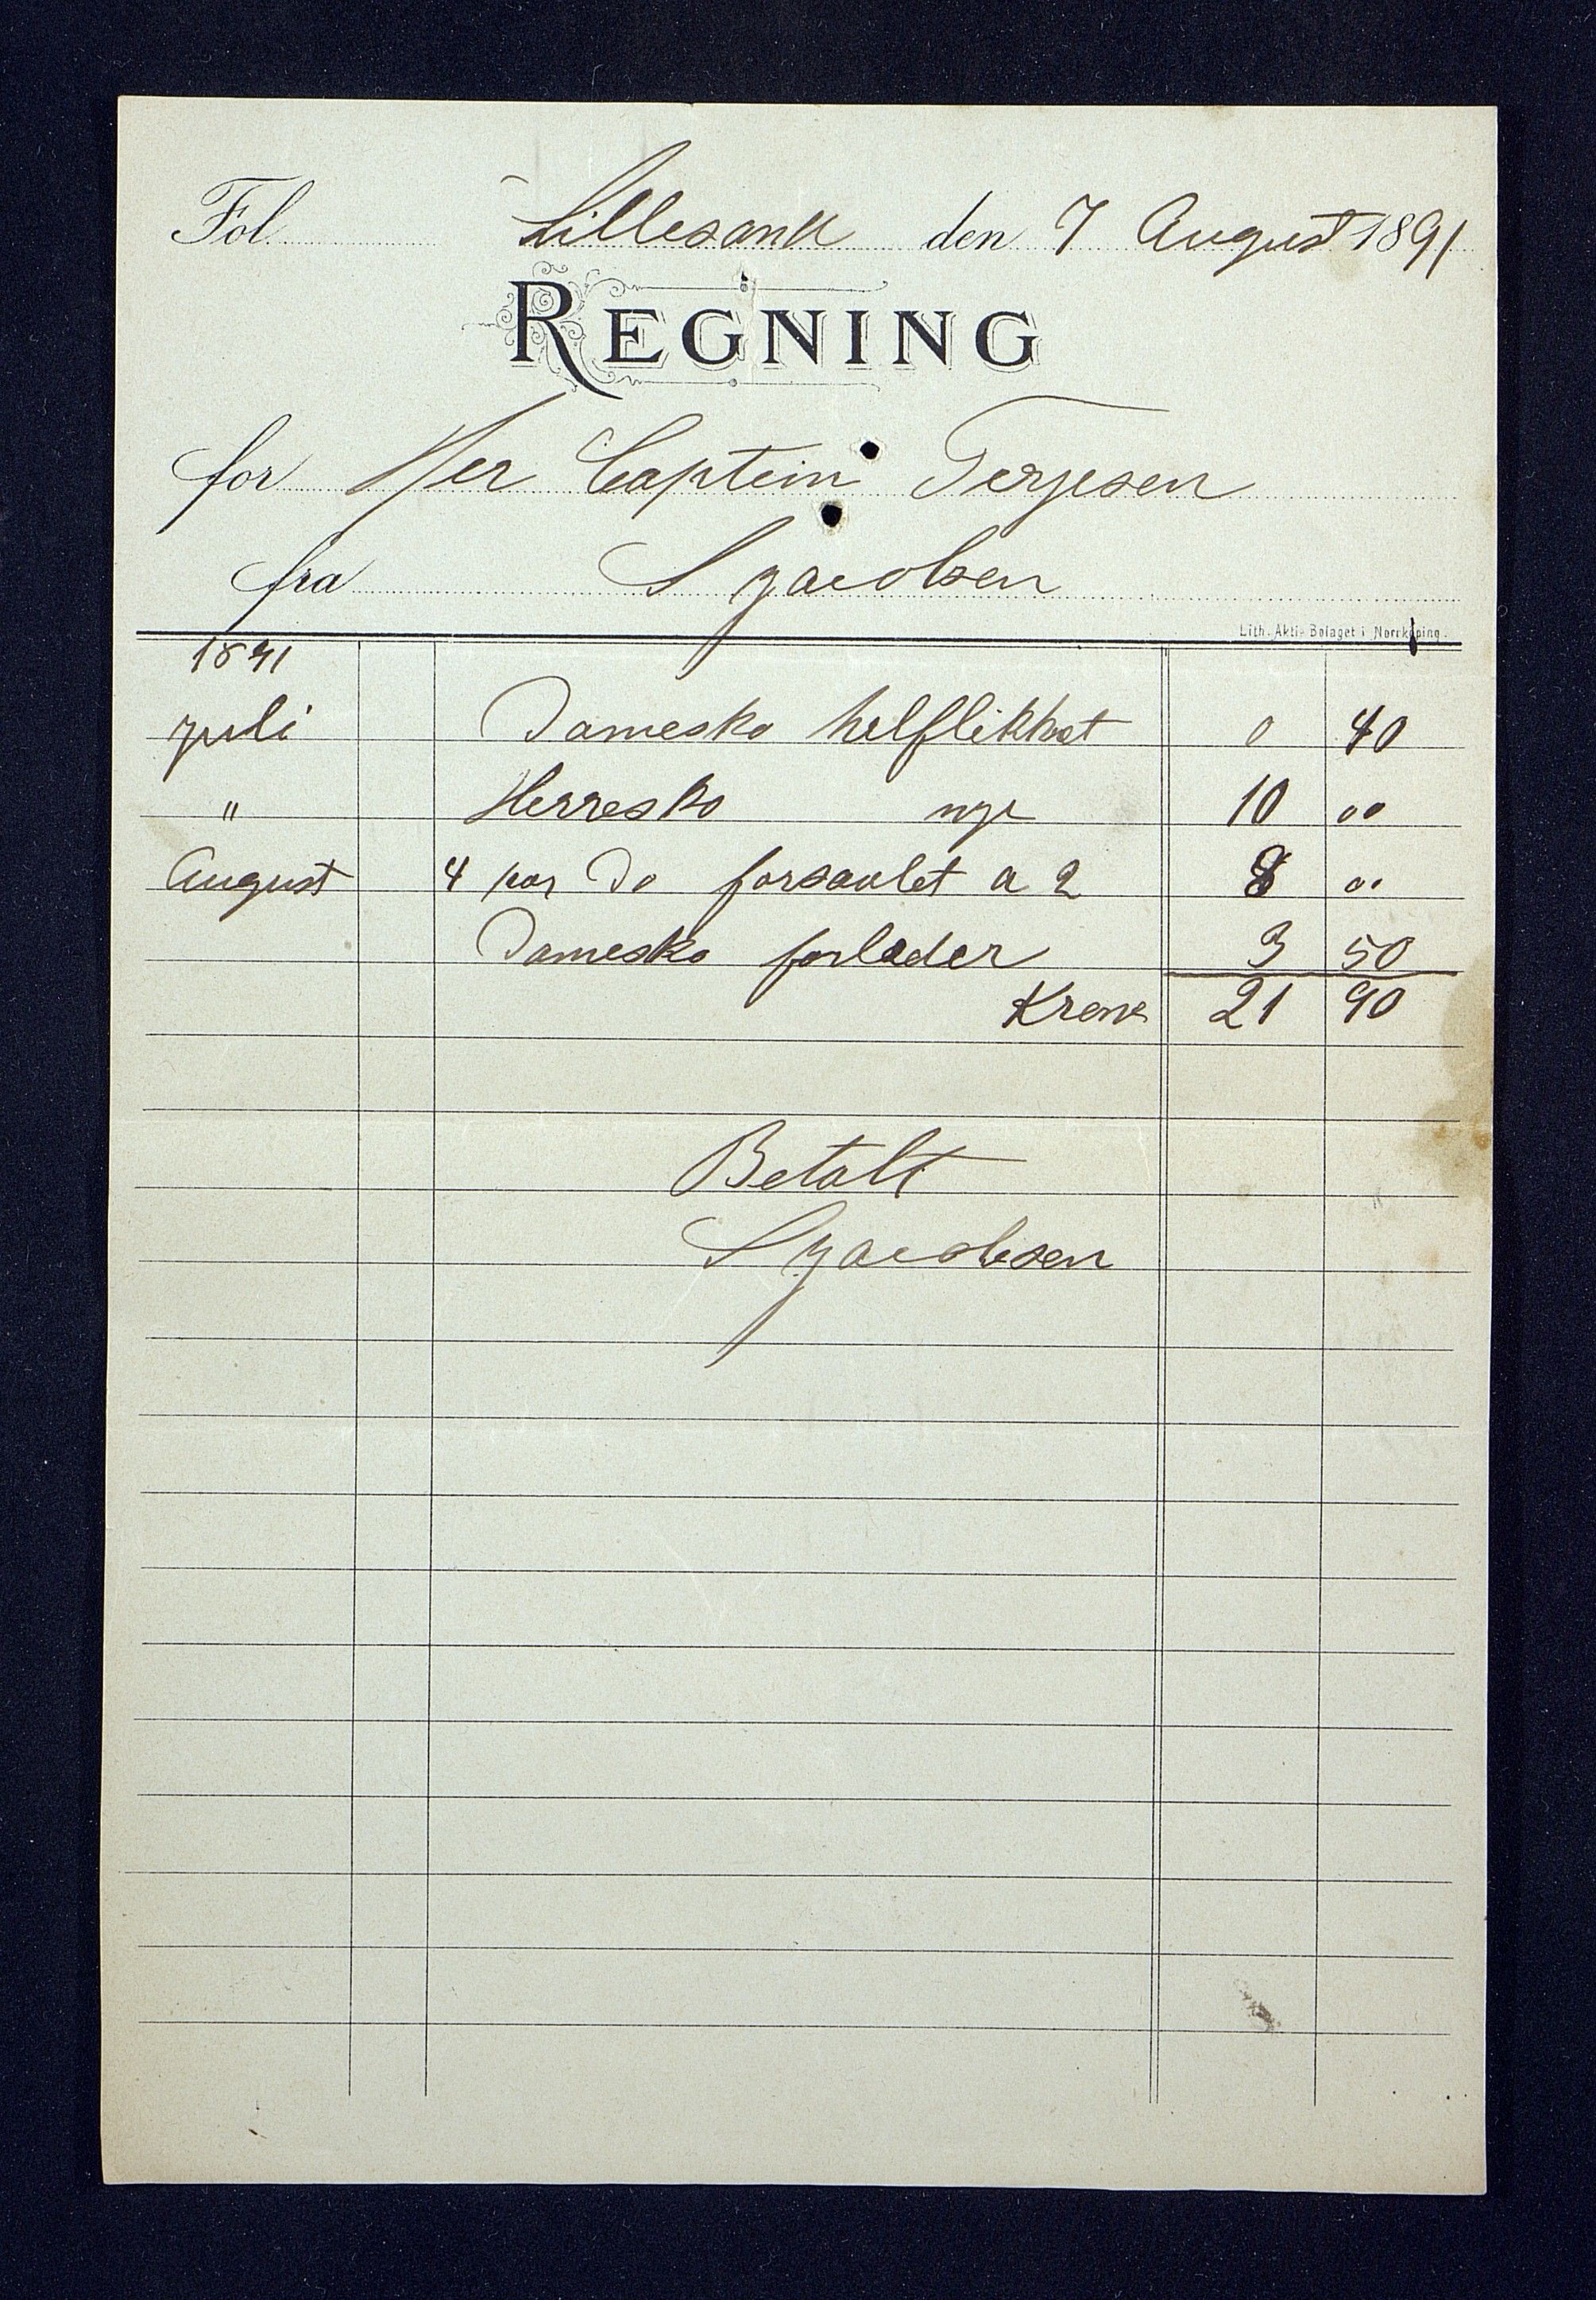 Fol. Lillesand den 7 August 1891
REGNING
for Herr Captein Terjesen
fra S Jacobsen
Lith. Akti-Bolaget i Norrköping.
1891
juli Damesko helflikket 0 40
" Herresko nye 10 00
August 4 par Do forsaalet a 2 8 00
Damesko forlæder 3 50
Krone 21 90
Betalt
S Jacobsen